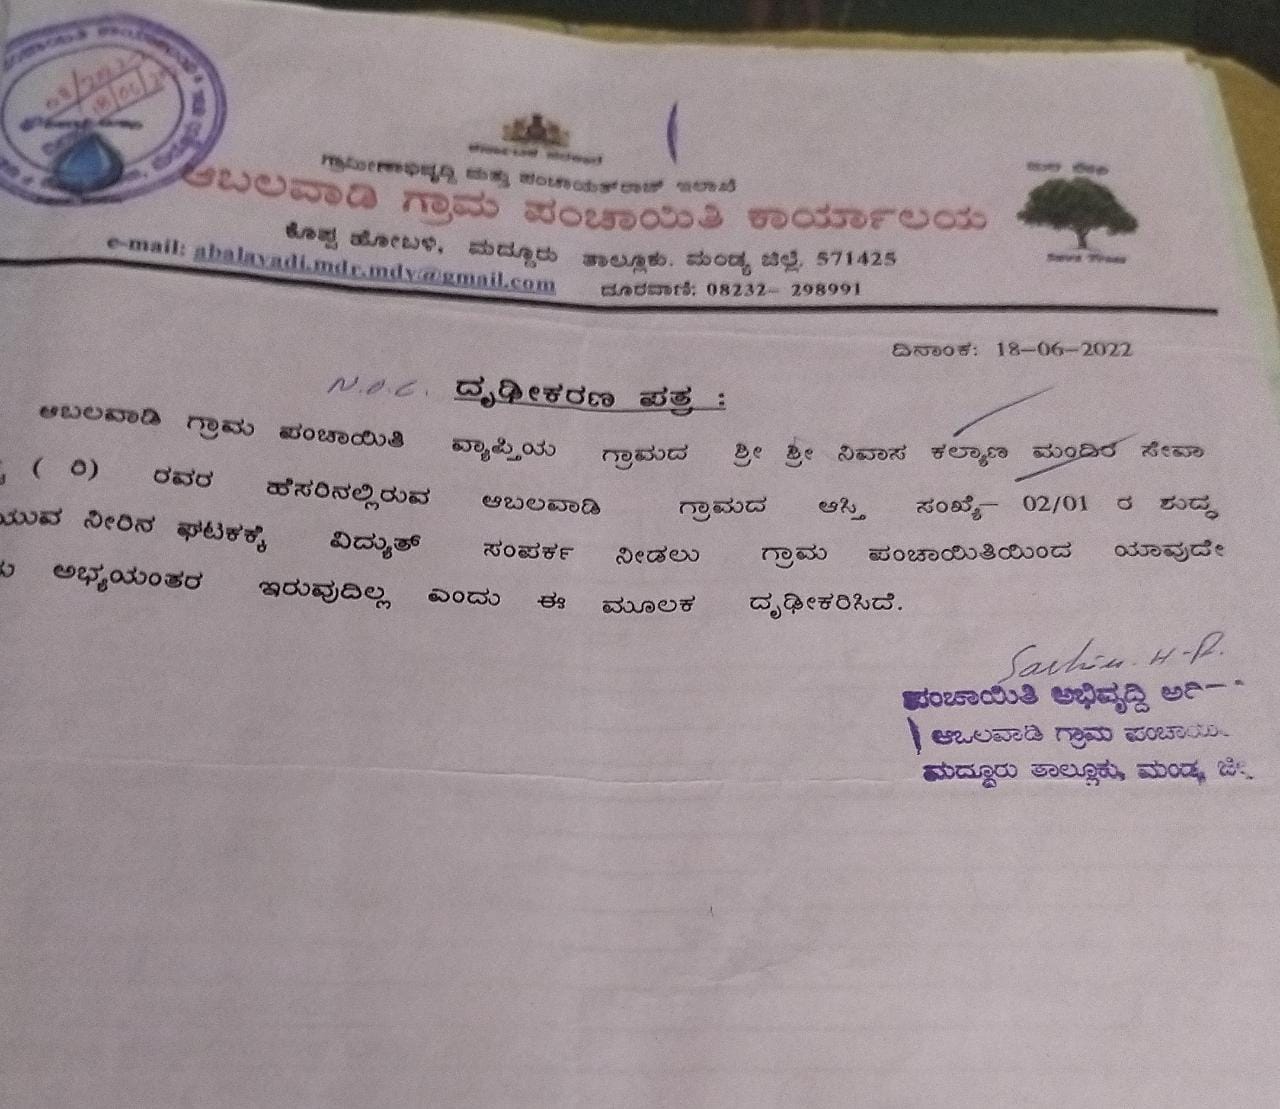 08/2022
18/06/22
ಗ್ರಾಮೀಣಾಭಿವೃದ್ಧಿ ಮತ್ತು ಪಂಚಾಯತ್‌ರಾಜ್ ಇಲಾಖೆ
ಆಬಲವಾಡಿ ಗ್ರಾಮ ಪಂಚಾಯಿತಿ ಕಾರ್ಯಾಲಯ
ಕೊಪ್ಪ ಹೋಬಳಿ, ಮದ್ದೂರು ತಾಲ್ಲೂಕು. ಮಂಡ್ಯ ಜಿಲ್ಲೆ, 571425
e-mail: abalavadi.mdr.mdy@gmail.com ದೂರವಾಣಿ: 08232– 298991
Save Trees
ದಿನಾಂಕ: 18–06–2022
N.O.C. ದೃಢೀಕರಣ ಪತ್ರ :
ಆಬಲವಾಡಿ ಗ್ರಾಮ ಪಂಚಾಯಿತಿ ವ್ಯಾಪ್ತಿಯ ಗ್ರಾಮದ ಶ್ರೀ ಶ್ರೀ ನಿವಾಸ ಕಲ್ಯಾಣ ಮಂದಿರ ಸೇವಾ
( ರಿ) ರವರ ಹೆಸರಿನಲ್ಲಿರುವ ಆಬಲವಾಡಿ ಗ್ರಾಮದ ಆಸ್ತಿ ಸಂಖ್ಯೆ– 02/01 ರ ಶುದ್ಧ
ಯುವ ನೀರಿನ ಘಟಕಕ್ಕೆ ವಿದ್ಯುತ್ ಸಂಪರ್ಕ ನೀಡಲು ಗ್ರಾಮ ಪಂಚಾಯಿತಿಯಿಂದ ಯಾವುದೇ
ಅಭ್ಯಯಂತರ ಇರುವುದಿಲ್ಲ ಎಂದು ಈ ಮೂಲಕ ದೃಢೀಕರಿಸಿದೆ.
Sachin. H.R.
ಪಂಚಾಯಿತಿ ಅಭಿವೃದ್ದಿ
ಆಬಲವಾಡಿ ಗ್ರಾಮ ಪಂಚಾಯಿ
ಮದ್ದೂರು ತಾಲ್ಲೂಕು, ಮಂಡ್ಯ ಜಿ